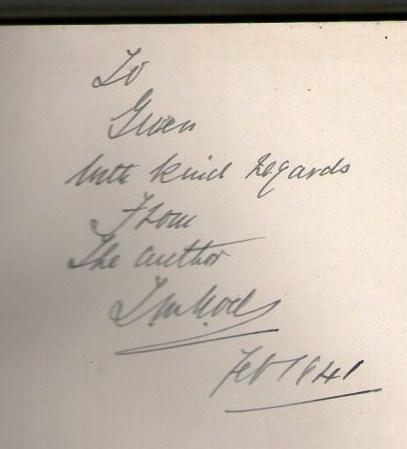 To
Gwen
With kind regards
From
The author
Feb 1941